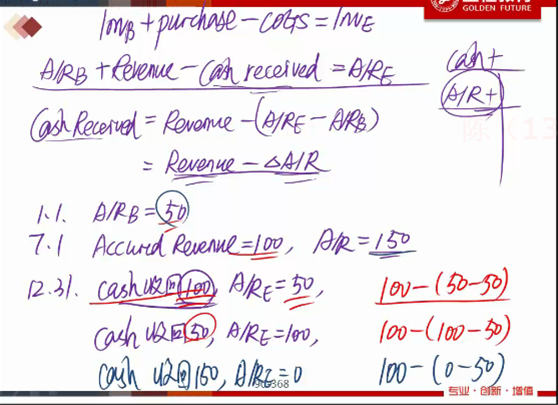 InvB + purchase - COGS = InvE
A/RB + Revenue - Cash received = A/RE
Cash+
A/R+
Cash Received = Revenue - (A/RE - A/RB)
= Revenue - △A/R
1.1. A/RB = 50
7.1 Accured Revenue = 100, A/R = 150
12.31. Cash 收回100, A/RE = 50, 100-(50-50)
Cash 收回50, A/RE = 100, 100-(100-50)
Cash 收回150, A/RE = 0 100-(0-50)
GOLDEN FUTURE
专业·创新·增值